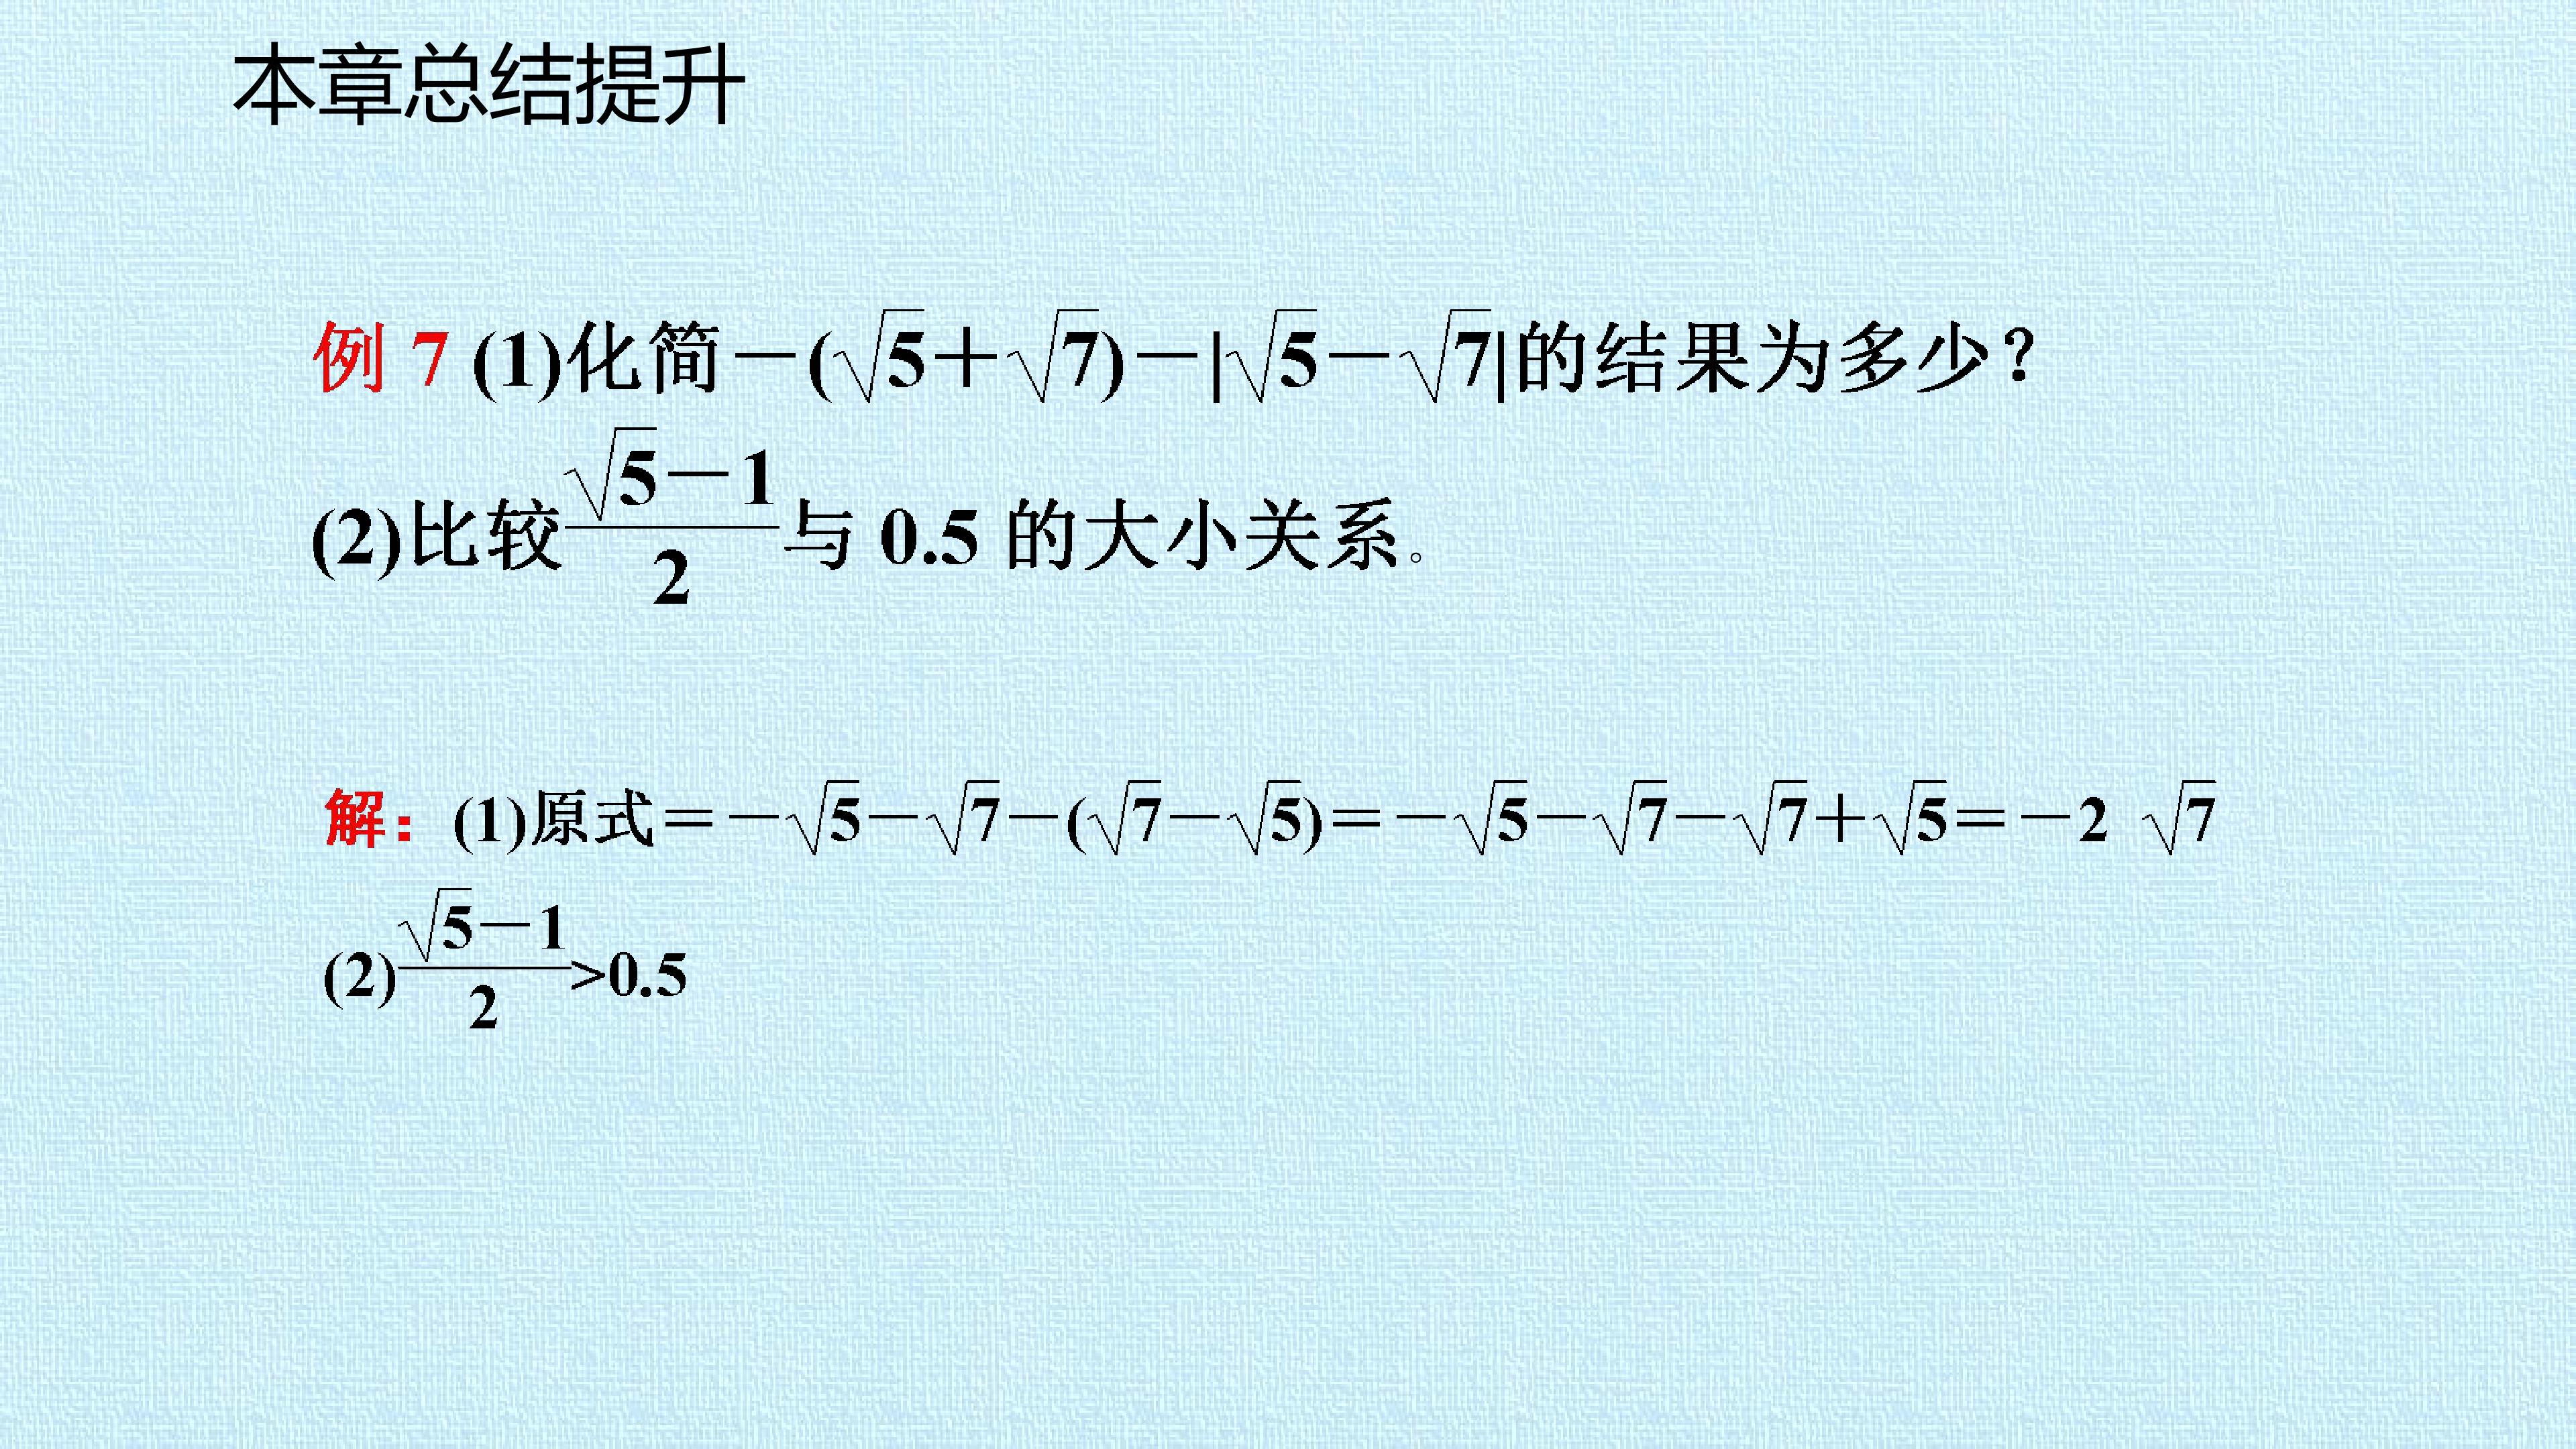 本章总结提升
例 7 (1)化简－(√5＋√7)－|√5－√7|的结果为多少？
(2)比较(√5－1)/2与 0.5 的大小关系。
解：(1)原式＝－√5－√7－(√7－√5)＝－√5－√7－√7＋√5＝－2 √7
(2)(√5－1)/2>0.5